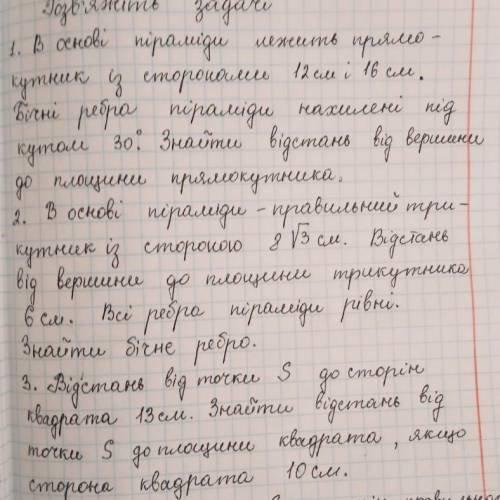 Розв'яжіть задачі
1. В основі піраміди лежить прямо-
кутник із сторонами 12 см і 16 см.
Бічні ребра піраміди нахилені під
кутом 30°. Знайти відстань від вершини
до площини прямокутника.
2. В основі піраміди - правильний три-
кутник із стороною 8√3 см. Відстань
від вершини до площини трикутника
6 см. Всі ребра піраміди рівні.
Знайти бічне ребро.
3. Відстань від точки S до сторін
квадрата 13 см. Знайти відстань від
точки S до площини квадрата, якщо
сторона квадрата 10 см.